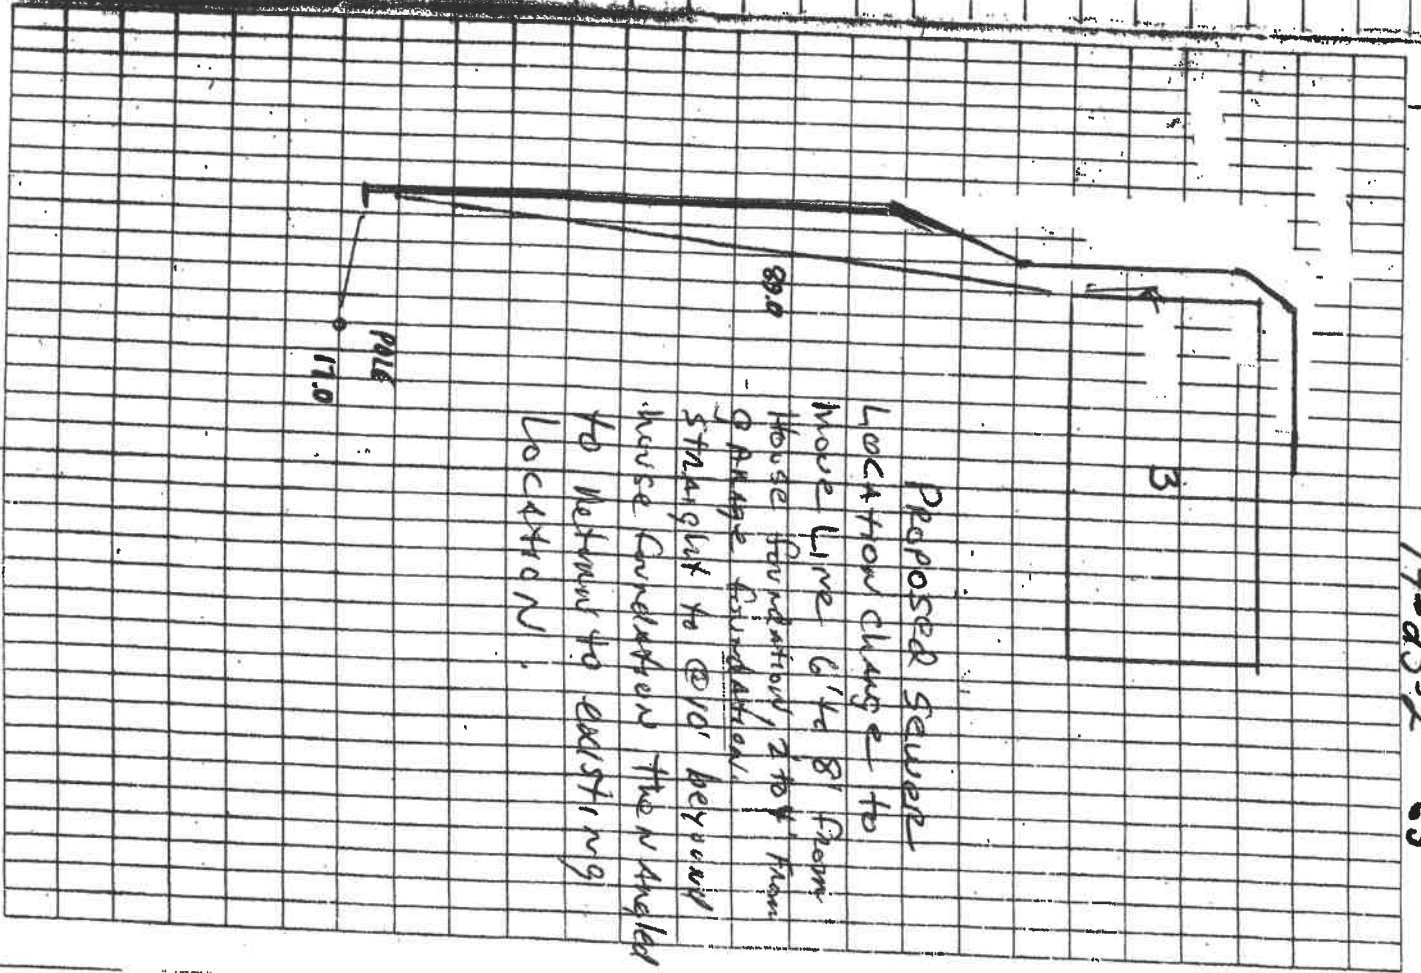 3
Proposed Sewer
Location Change to
Move Line 6' to 8' from
House foundation, 2 to 4' from
Garage foundation.
Straight to @10' beyound
house foundation then Angled
to Return to existing
Location.
80.0
Pole
17.0